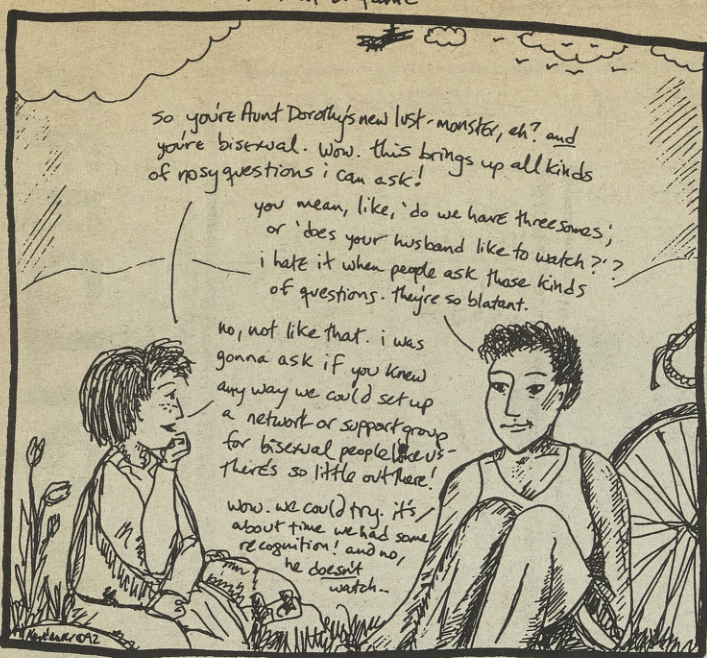 so you're Aunt Dorothy's new lust-monster, eh? and
you're bisexual. wow. this brings up all kinds
of nosy questions i can ask!
you mean, like, 'do we have threesomes',
or 'does your husband like to watch?'?
i hate it when people ask those kinds
of questions. they're so blatant.
no, not like that. i was
gonna ask if you knew
any way we could set up
a network or support group
for bisexual people like us-
there's so little out there!
wow. we could try. it's
about time we had some
recognition! and no,
he doesn't
watch...